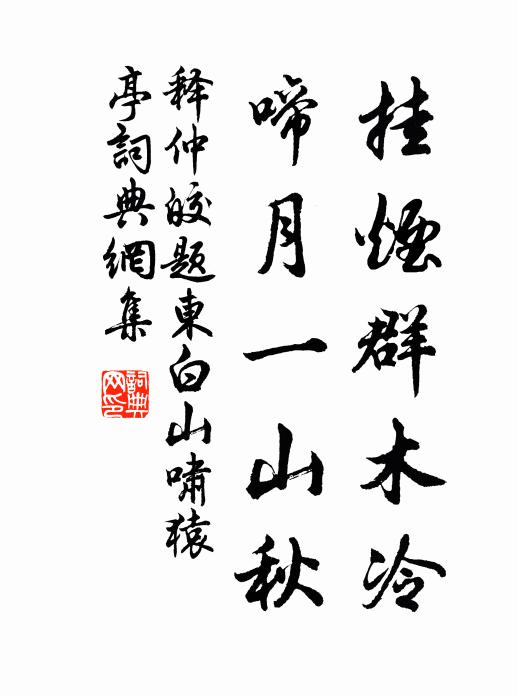 挂煙群木冷
啼月一山秋
释仲皎题東白山嘯猿
亭詞典網集
詞典
网印